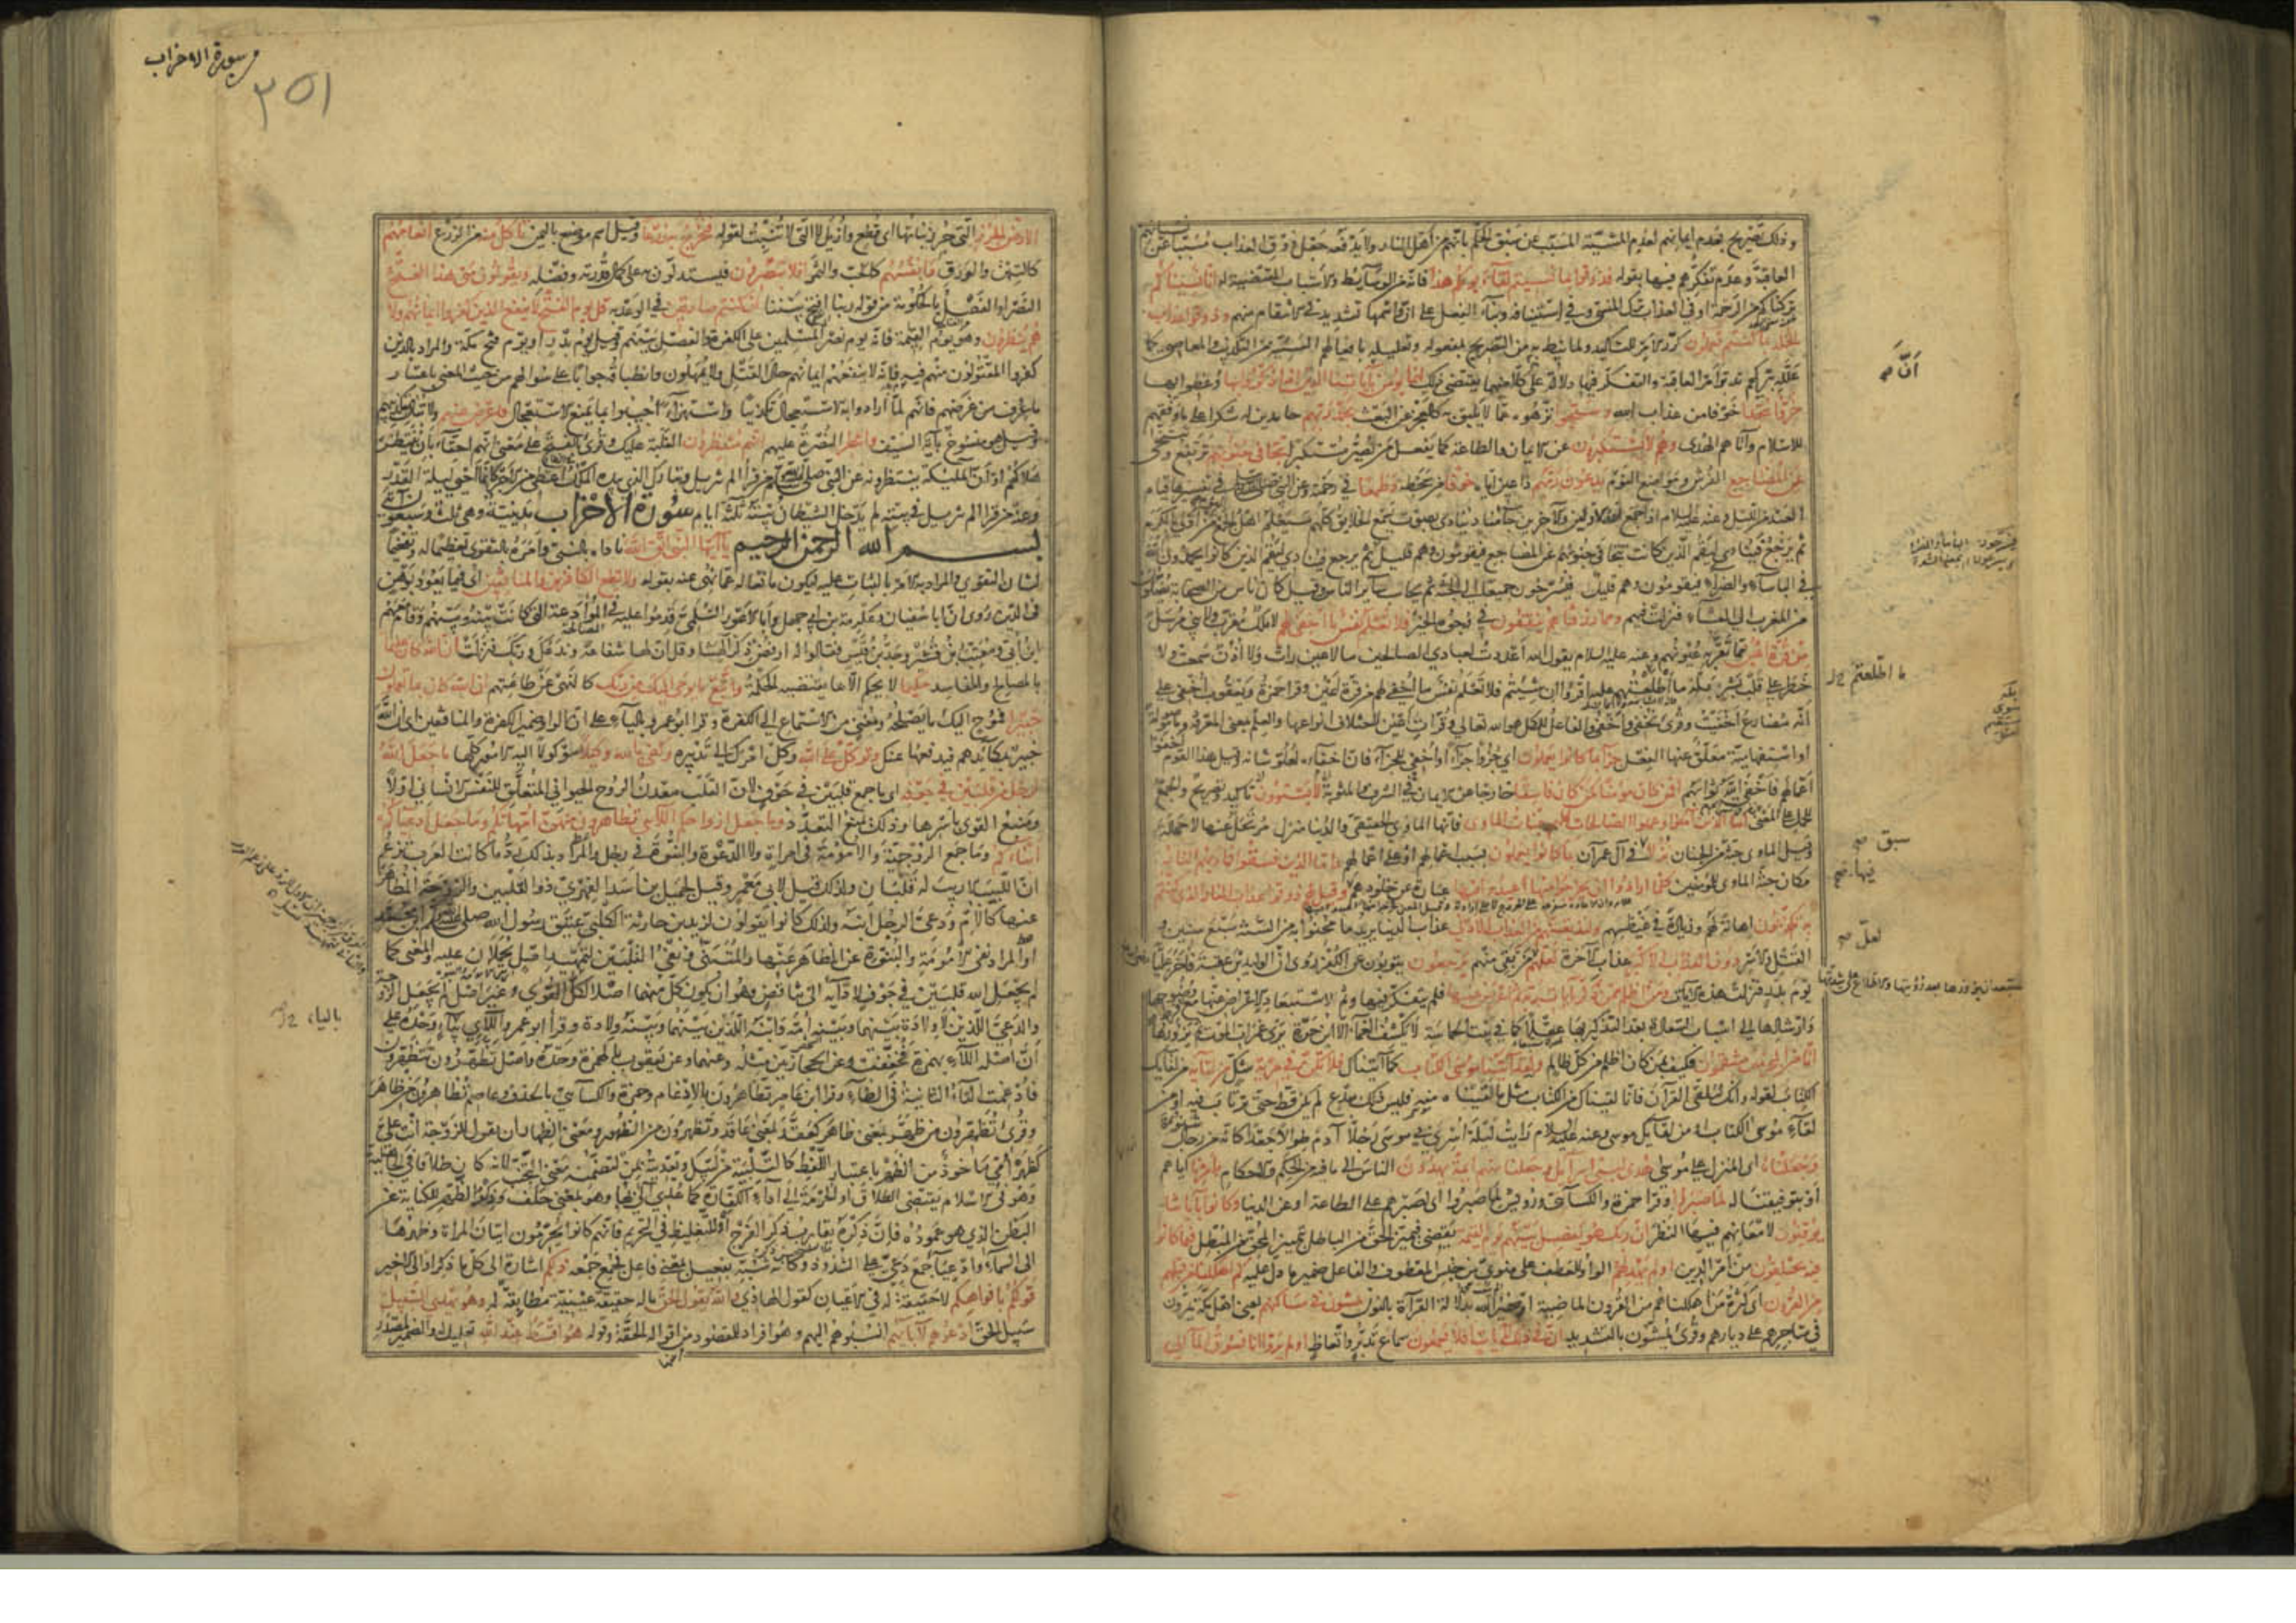 وذلك تصريح بعدم ايمانهم لعدم المشيئة المسبب عن سبق الحكم بانهم من اهل النار ولا يدفعه جعل ذوق العذاب مسببا عن نسيانهم
العاقبة وعدم تفكرهم فيها بقوله فذوقوا بما نسيتم لقاء يومكم هذا فانه من الوسايط والاسباب المقتضية له انا نسيناكم
تركناكم من الرحمة او في العذاب ترك المنسي وفي استينافه وبناء الفعل على ان واسمها تشديد في الانتقام منهم وذوقوا عذاب
الخلد بما كنتم تعملون كرر الامر للتاكيد ولما نيط به من التصريح بمفعوله وتعليله بافعالهم السيئة من التكذيب والمعاصي كما
علله بتركهم تدبر امر العاقبة والتفكر فيها دلالة على ان كلا منهما يقتضي ذلك انما يؤمن باياتنا الذين اذا ذكروا بها وعظوا بها
خروا سجدا خوفا من عذاب الله وسبحوا نزهوه عما لا يليق به كالعجز عن البعث بحمد ربهم حامدين له شكرا على ما وفقهم
للاسلام واتاهم الهدى وهم لا يستكبرون عن الايمان والطاعة كما يفعل من يصر مستكبرا تتجافى جنوبهم ترتفع وتتنحى
عن المضاجع الفرش ومواضع النوم يدعون ربهم داعين اياه خوفا من سخطه وطمعا في رحمته وعن النبي في تفسيرها قيام
العبد من الليل وعنه عليه السلام اذا جمع الله الاولين والاخرين جاء مناد ينادي بصوت يسمع الخلايق كلهم سيعلم اهل الجمع من اولى بالكرم
ثم يرجع فينادي ليقم الذين كانت تتجافى جنوبهم عن المضاجع فيقومون وهم قليل ثم يرجع فينادي ليقم الذين كانوا يحمدون الله
في الباساء والضراء فيقومون وهم قليل فيسرحون جميعا الى الجنة ثم يحاسب ساير الناس وقيل كان ناس من الصحابة يصلون
من المغرب الى العشاء فنزلت فيهم ومما رزقناهم ينفقون في وجوه الخير فلا تعلم نفس ما اخفي لهم لا ملك مقرب ولا نبي مرسل
من قرة اعين مما تقر به عيونهم وعنه عليه السلام يقول الله اعددت لعبادي الصالحين ما لا عين رات ولا اذن سمعت ولا
خطر على قلب بشر بله ما اطلعتهم عليه اقرؤا ان شئتم فلا تعلم نفس ما اخفي لهم من قرة اعين وقرا حمزة ويعقوب اخفي على
انه مضارع اخفيت وقرئ نخفي واخفى والفاعل للكل هو الله تعالى وقرات اعين لاختلاف انواعها والعلم بمعنى المعرفة وما موصولة
او استفهامية معلق عنها الفعل جزاء بما كانوا يعملون اي جزوا جزاء او اخفي للجزاء فان اخفاءه لعلو شانه وقيل هذا القوم اخفوا
اعمالهم فاخفى الله ثوابهم افمن كان مؤمنا كمن كان فاسقا خارجا عن الايمان لا يستوون في الشرف والمثوبة تاكيد وتصريح والجمع
للحمل على المعنى اما الذين امنوا وعملوا الصالحات فلهم جنات الماوى فانها الماوى الحقيقي والدنيا منزل مرتحل عنها لا محالة
وقيل الماوى جنة من الجنان نزلا في آل عمران بما كانوا يعملون بسبب اعمالهم او على اعمالهم واما الذين فسقوا فماواهم النار
مكان جنة الماوى للمؤمنين كلما ارادوا ان يخرجوا منها اعيدوا فيها عبارة عن خلودهم وقيل لهم ذوقوا عذاب النار الذي كنتم
به تكذبون اهانة لهم وزيادة في غيظهم ولنذيقنهم من العذاب الادنى عذاب الدنيا يريد ما محنوا به من السنة سبع سنين و
القتل والاسر دون العذاب الاكبر عذاب الاخرة لعلهم لعل من بقي منهم يرجعون يتوبون عن الكفر روي ان الوليد بن عقبة فاخر عليا
يوم بدر فنزلت هذه الايات ومن اظلم ممن ذكر بايات ربه ثم اعرض عنها فلم يتفكر فيها وثم لاستبعاد الاعراض عنها مع وضوحها
وارشادها الى اسباب السعادة بعد التذكير بها عقلا كما في بيت الحماسة لا يكشف الغماء الا ابن حرة يرى غمرات الموت ثم يزورها
انا من المجرمين منتقمون فكيف بمن كان اظلم من كل ظالم ولقد اتينا موسى الكتاب كما آتيناك فلا تكن في مرية شك من لقائه من لقائك
الكتاب لقوله وانك لتلقى القران فانا لقيناك من الكتاب مثل ما لقيناه منه فليس ذلك ببدع لم يكن قط حتى ترتاب فيه او من
لقاء موسى الكتاب او من لقائك موسى وعنه عليه السلام رايت ليلة اسري بي موسى رجلا آدم طوالا جعدا كانه من رجال شنوءة
وجعلناه اي المنزل على موسى هدى لبني اسرائيل وجعلنا منهم ائمة يهدون الناس الى ما فيه من الحكم والاحكام بامرنا اياهم
او بتوفيقنا له لما صبروا وقرا حمزة والكسائي ورويس لما صبروا اي لصبرهم على الطاعة او عن الدنيا وكانوا باياتنا
يوقنون لامعانهم فيها النظر ان ربك هو يفصل بينهم يوم القيمة يقضي فيميز الحق من الباطل بتمييز المحق من المبطل فيما كانوا
فيه يختلفون من امر الدين اولم يهد لهم الواو للعطف على منوي من جنس المعطوف والفاعل ضمير ما دل عليه كم اهلكنا من قبلهم
من القرون اي كثرة من اهلكناهم من القرون الماضية او ضمير الله بدلالة القراءة بالنون يمشون في مساكنهم يعني اهل مكة يمرون
في متاجرهم على ديارهم وقرئ يمشون بالتشديد ان في ذلك لايات افلا يسمعون سماع تدبر واتعاظ اولم يروا انا نسوق الماء الى
ان صح
ما اطلعتم
سبق صح
فيها صح
لعل صح
سورة الاحزاب
٣٥١
الارض الجرز التي جرز نباتها اي قطع وازيل لا التي لا تنبت لقوله فنخرج به زرعا وقيل اسم موضع باليمن تاكل منه من الزرع انعامهم
كالتبن والورق وانفسهم كالحب والثمر افلا يبصرون فيستدلون به على كمال قدرته وفضله ويقولون متى هذا الفتح
النصر او الفصل بالحكومة من قوله ربنا افتح بيننا ان كنتم صادقين في الوعد به قل يوم الفتح لا ينفع الذين كفروا ايمانهم ولا
هم ينظرون وهو يوم القيمة فانه يوم نصر المسلمين على الكفرة والفصل بينهم وقيل يوم بدر او يوم فتح مكة والمراد بالذين
كفروا المقتولون منهم فيه فانه لا ينفعهم ايمانهم حال القتل ولا يمهلون وانطباقه جوابا على سؤالهم من حيث المعنى باعتبار
ما عرف من غرضهم فانهم لما ارادوا به الاستعجال تكذيبا واستهزاء اجيبوا بما يمنع الاستعجال فاعرض عنهم ولا تبال بتكذيبهم
وقيل هو منسوخ بآية السيف وانتظر النصرة عليهم انهم منتظرون الغلبة عليك وقرئ بالفتح على معنى انهم احقاء بان ينتظر
هلاكهم او ان الملئكة ينتظرونه عن النبي صلى الله من قرأ الم تنزيل وتبارك الذي بيده الملك اعطي من الاجر كانما احيى ليلة القدر
وعنه من قرا الم تنزيل في بيته لم يدخل الشيطان بيته ثلثة ايام سورة الاحزاب مدنية وهي ثلث وسبعون آية
بسم الله الرحمن الرحيم يا ايها النبي اتق الله ناداه بالنبي وامره بالتقوى تعظيما له وتفخيما
لشان التقوى والمراد به الامر بالثبات عليه ليكون مانعا له عما نهي عنه بقوله ولا تطع الكافرين والمنافقين اي فيما يعود بوهن
في الدين روي ان ابا سفيان وعكرمة بن ابي جهل وابا الاعور السلمي قدموا عليه في الموادعة التي كانت بينه وبينهم وقام معهم
ابن ابي ومعتب بن قشير وجد بن قيس فقالوا له ارفض ذكر آلهتنا وقل ان لها شفاعة وندعك وربك فنزلت ان الله كان عليما
بالمصالح والمفاسد حكيما لا يحكم الا بما يقتضيه الحكمة واتبع ما يوحى اليك من ربك كالنهي عن طاعتهم ان الله كان بما تعملون
خبيرا فموح اليك ما يصلحه ومغني من الاستماع الى الكفرة وقرا ابو عمرو بالياء على ان الواو ضمير الكفرة والمنافقين اي ان الله
خبير بمكائدهم فيدفعها عنك وتوكل على الله وكل امرك الى تدبيره وكفى بالله وكيلا موكولا اليه الامور كلها ما جعل الله
لرجل من قلبين في جوفه اي ما جمع قلبين في جوف لان القلب معدن الروح الحيواني المتعلق للنفس الانساني اولا
ومنبع القوى باسرها وذلك يمنع التعدد وما جعل ازواجكم اللائي تظاهرون منهن امهاتكم وما جعل ادعياءكم
ابناءكم وما جمع الزوجية والامومة في امراة ولا الدعوة والبنوة في رجل والمراد بذلك رد ما كانت العرب تزعم
ان اللبيب الاريب له قلبان ولذلك قيل لابي معمر وقيل لجميل بن اسد الفهري ذو القلبين والزوجة المظاهر
عنها كالام ودعي الرجل ابنه ولذلك كانوا يقولون لزيد بن حارثة الكلبي عتيق رسول الله صلى الله ابن محمد
او المراد نفي الامومة والبنوة عن المظاهر عنها والمتبنى ونفي القلبين لتمهيد اصل يحملان عليه والمعنى كما
لم يجعل الله قلبين في جوف لادائه الى تناقض وهو ان يكون كل منهما اصلا لكل القوى وغير اصل لم يجعل الزوجة
والدعي اللذين لا ولادة بينهما وبينه امه وابنه اللذين بينهما وبينه ولادة وقرأ ابو عمرو اللاي بالياء وحده على
ان اصله اللاء بهمزة فخففت وعن الحجازيين مثله وعنهما وعن يعقوب بالهمزة وحده واصل تظهرون تتظهرون
فادغمت التاء الثانية في الظاء وقرا ابن عامر تظاهرون بالادغام وحمزة والكسائي بالحذف وعاصم تظاهرون من ظاهر
وقرئ تظهرون من ظهر بمعنى ظاهر كعقد بمعنى عاقد وتظهرون من الظهور ومعنى الظهار ان يقول للزوجة انت علي
كظهر امي ماخوذ من الظهر باعتبار اللفظ كالتلبية من لبيك وتعديته بمن لتضمنه معنى التجنب لانه كان طلاقا في الجاهلية
وهو في الاسلام يقتضي الطلاق او الحرمة الى اداء الكفارة كما عدي آلى بها وهو بمعنى حلف وذكر الظهر للكناية عن
البطن الذي هو عموده فان ذكره يقارب ذكر الفرج او للتغليظ في التحريم فانهم كانوا يحرمون اتيان المراة وظهرها
الى السماء وادعياء جمع دعي على الشذوذ وكانه شبه بفعيل بمعنى فاعل فجمع جمعه ذلكم اشارة الى كل ما ذكر او الى الاخير
قولكم بافواهكم لا حقيقة له في الاعيان كقول الهاذي والله يقول الحق ما له حقيقة عينية مطابقة له وهو يهدي السبيل
سبيل الحق ادعوهم لابائهم انسبوهم اليهم وهو افراد للمقصود من اقواله الحقة وقوله هو اقسط عند الله تعليل له والضمير لمصدر
بالياء